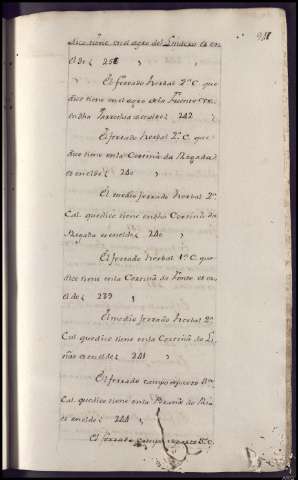 dice tiene en el agro del Lindeiro es en
el de 258
El ferrado herbal 2.ª C. que
dice tiene en el agro de la Fuente
en dha Parrochia es en el de 242
El ferrado herbal 2.ª C. que
dice tiene en la Cortiña da Regada
es en el de 240
El medio ferrado herbal 2.ª
Cal. que dice tiene en dha Cortiña da
Regada es en el de 240
El ferrado herbal 1.ª C. que
dice tiene en la Cortiña da Fonte es en
el de 239
El medio ferrado herbal 2.ª
Cal. que dice tiene en la Cortiña de
es en el de 241
El ferrado campo
Cal. que dice tiene en la
es en el de 244
El ferrado campo